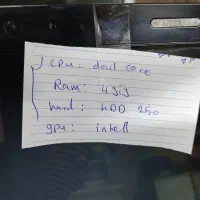 CPU: doul core
Ram: 4gig
hard: HDD 250
gpu: intell